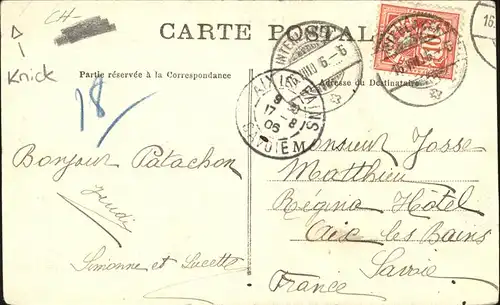 CH-
CARTE POSTALE
Knick
Partie réservée à la Correspondance
Adresse du Destinataire
18
AIX
17-8
06
SAVOIE
Bonjour Patachon
Jeudi
Simonne et Lucette
Monsieur Josse
Matthieu
Régina Hôtel
Aix les Bains
Savoie
France